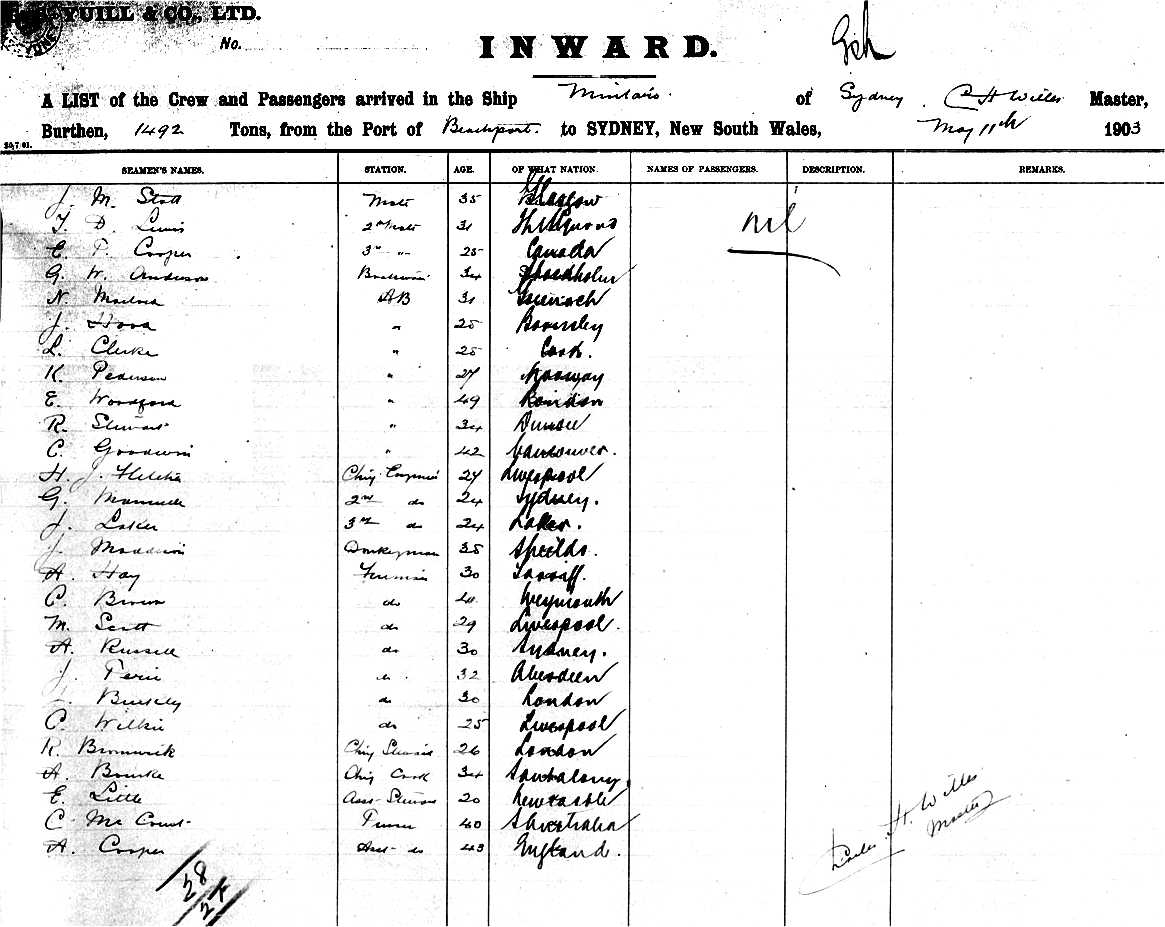 YUILL & CO., LTD.
No.
INWARD.
A LIST of the Crew and Passengers arrived in the Ship of Sydney, C H Willes Master,
Burthen, 1492 Tons, from the Port of Beachport. to SYDNEY, New South Wales, May 11th 1903
SEAMEN'S NAMES. STATION. AGE. OF WHAT NATION. NAMES OF PASSENGERS. DESCRIPTION. REMARKS.
J. M. Stott Mate 35 Glasgow nil
D. Lewis 2nd Mate 31
E. P. Cooper 3rd " 25 Canada
G. W. Anderson 34 Stockholm
N. AB 31 Greenock
J. " 25
L. Clerke " 25 Cork.
K. Pederson " 27 Norway
E. Woodford " 49 London
R. Stewart " 34 Dundee
C. Goodwin " 42 Vancouver.
H. J. Fletcher Chief Engineer 27 Liverpool
G. 2nd do 24 Sydney.
J. Laker 3rd do 24
J. Maddison Donkeyman 35 Shields.
A. Hay Fireman 30 Cardiff.
C. Brown do Weymouth
M. Scott do 29 Liverpool.
A. Russell do 30 Sydney.
J. 32 Aberdeen
do 30 London
C. Wilkie do 25 Liverpool
R. Bromwick Chief Steward 26 London
A. Bourke Chief Cook 34
E. Little Asst Steward 20 Newcastle
C. Mc Court 40 Australia
A. Cooper Asst do 43 England.
H. Willes
Master
28